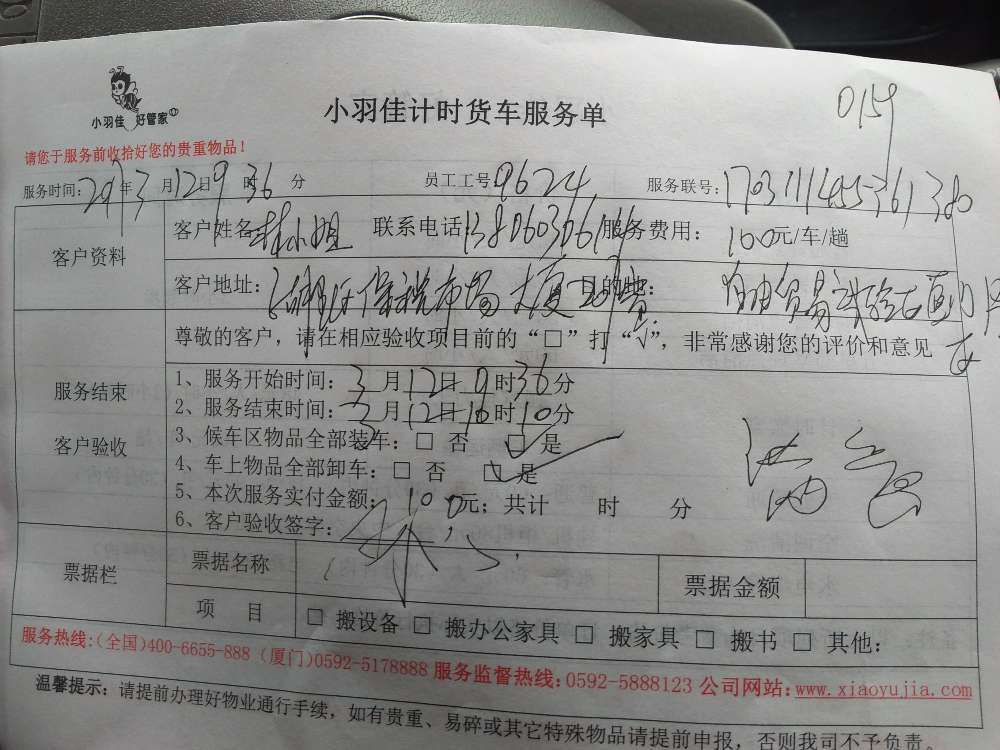 小羽佳 好管家
小羽佳计时货车服务单
0159
请您于服务前收拾好您的贵重物品！
服务时间: 年3月12日9时36分 员工工号 9624 服务联号:
客户资料 客户姓名 林小姐 联系电话 服务费用: 100元/车/趟
客户地址: 保税市场大厦 目的地: 自由贸易试验区厦门
尊敬的客户，请在相应验收项目前的“□”打“√”，非常感谢您的评价和意见
服务结束
客户验收
1、服务开始时间: 3月12日9时36分
2、服务结束时间: 3月12日10时10分
3、候车区物品全部装车: □ 否 □ 是
4、车上物品全部卸车: □ 否 □ 是
5、本次服务实付金额: 100元; 共计 时 分
6、客户验收签字: 林
满意
票据栏 票据名称 票据金额
项 目 □ 搬设备 □ 搬办公家具 □ 搬家具 □ 搬书 □ 其他:
服务热线:(全国)400-6655-888 (厦门)0592-5178888 服务监督热线:0592-5888123 公司网站:www.xiaoyujia.com
温馨提示: 请提前办理好物业通行手续，如有贵重、易碎或其它特殊物品请提前申报，否则我司不予负责。